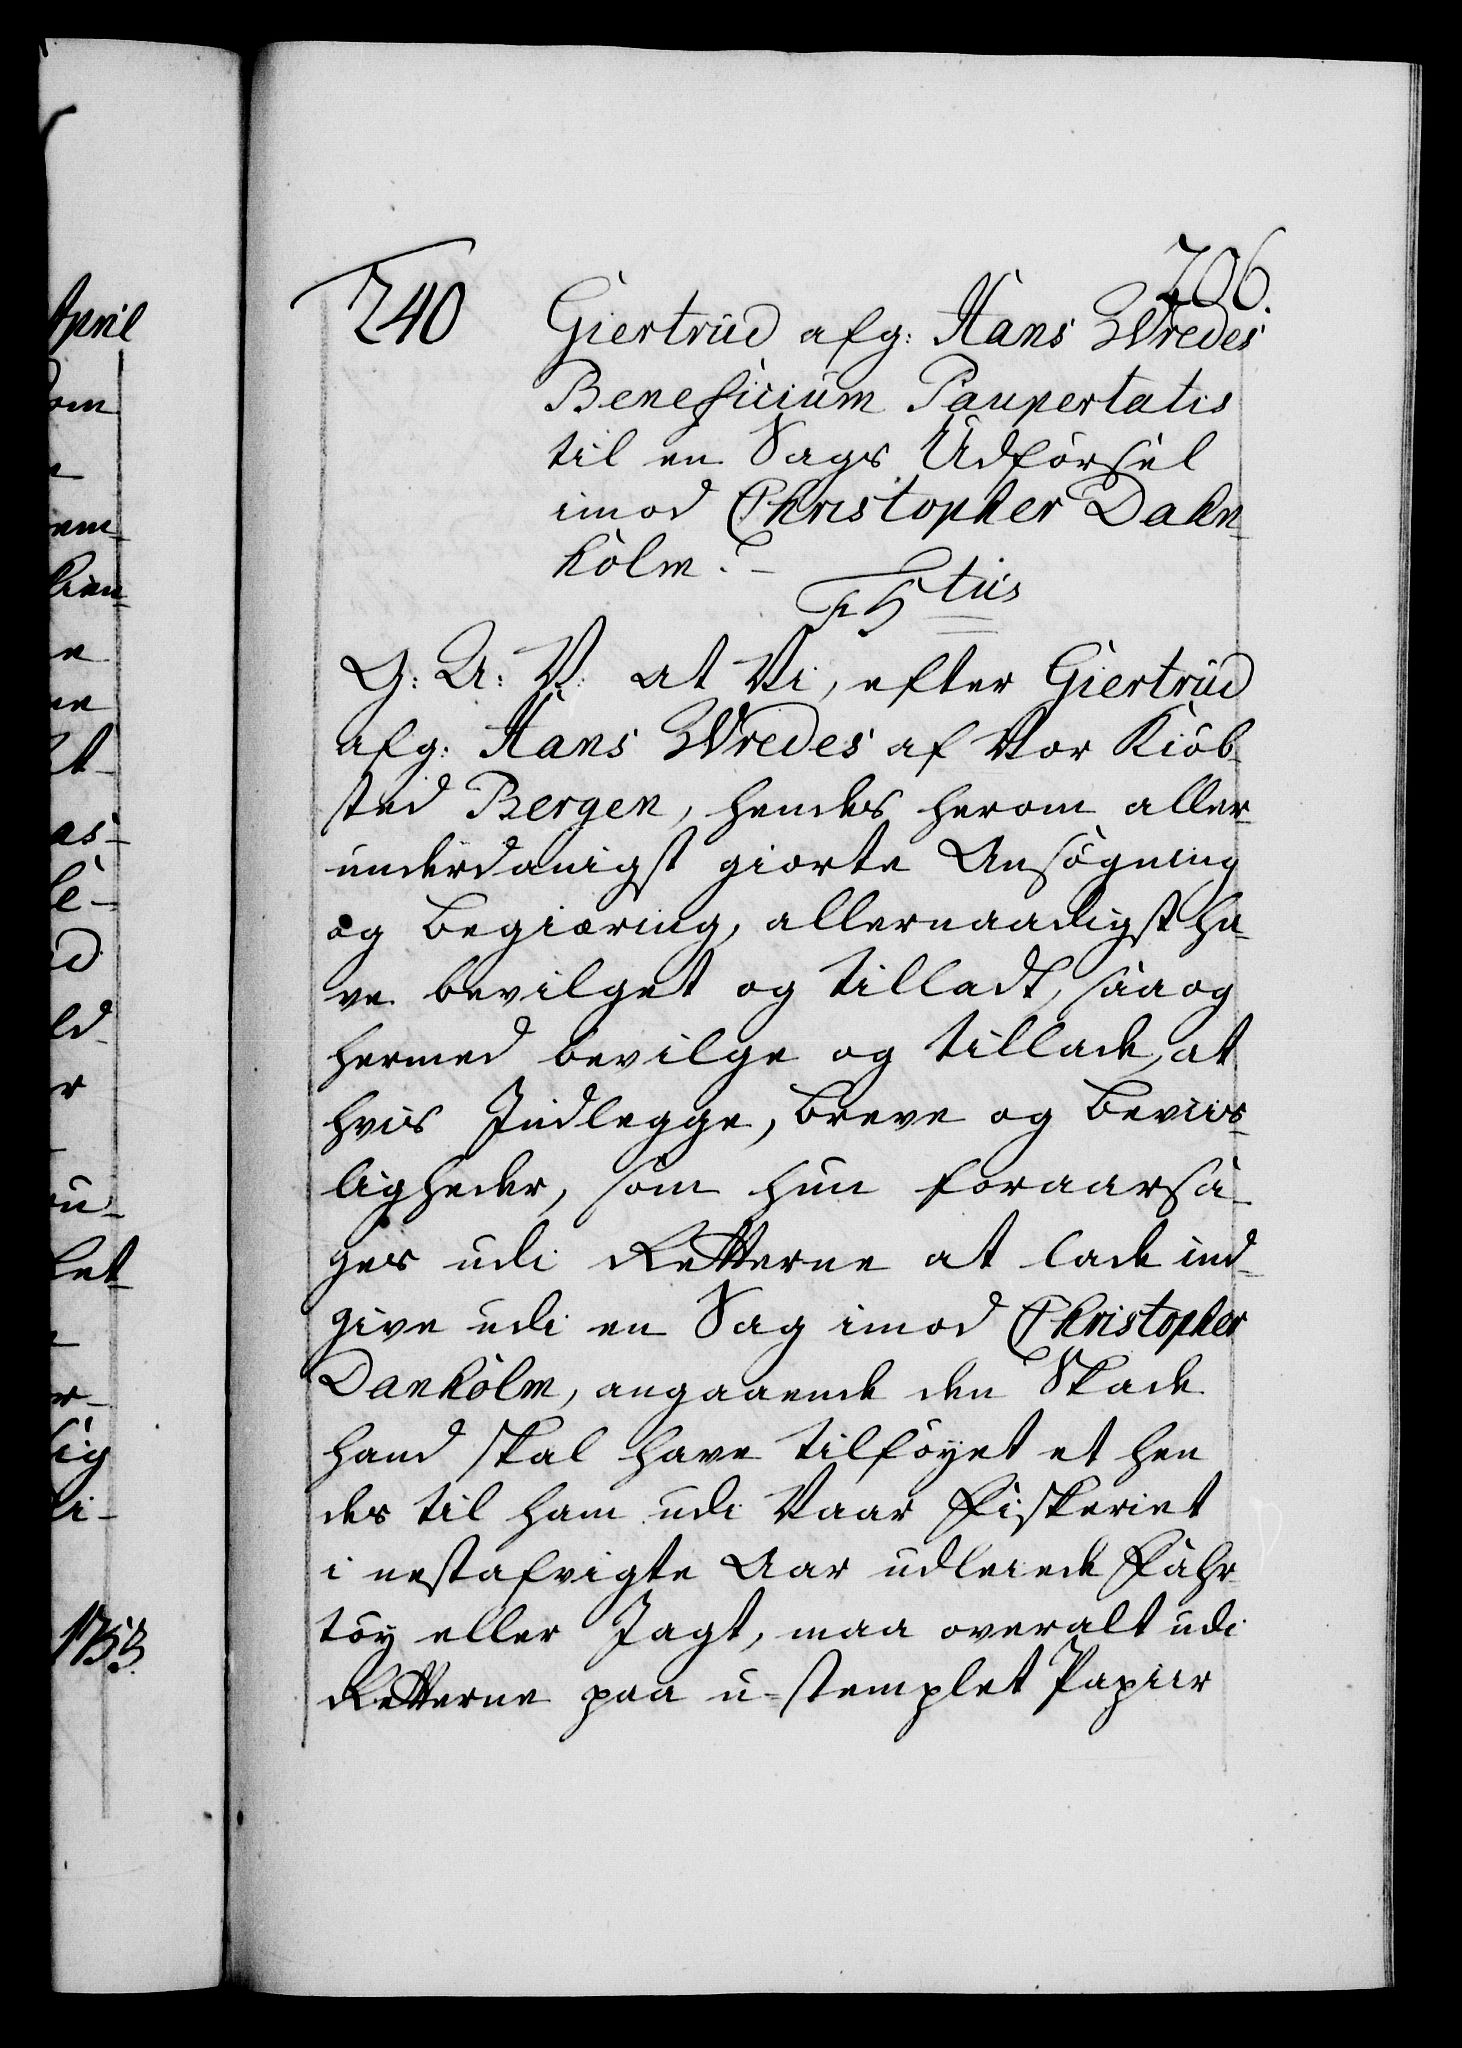 April
om
em-
kien-
e
ne
et-
as-
le-
d
ld
r
u-
ket-
r-
sig
di-
1753.
206.
240
Giertrüd afg: Hans Wredes
Beneficium Paupertatis
til en Sags Udførsel
imod Christopher Dahn-
holm.
F 5tus
G: A: V: at Vi, efter Giertrüd
afg: Hans Wredes af Vor Kiøb-
sted Bergen, hendes herom aller-
underdanigst giorte Ansøgning
og begiæring, allernaadigst ha-
ve bevilget og tilladt, saa og
hermed bevilge og tillade, at
hvis Indlegge, breve og beviis-
ligheder, som hun foraarsa-
ges udi Retterne at lade ind-
give udi en Sag imod Christopher
Danholm, angaaende den Skade
hand skal have tilføyet et hen
des til ham udi Vaar Fiskeriet
i nestafvigte Aar udleiede Fahr-
tøy eller Jagt, maa overalt udi
Retterne paa u-stemplet Papiir